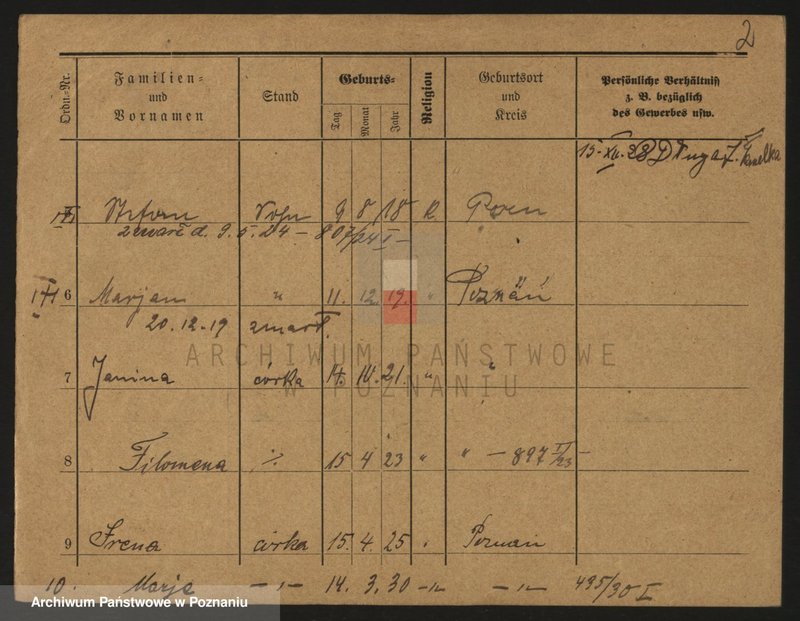 2
Ordn.-Nr.
Familien-
und
Vornamen
Stand
Geburts-
Tag
Monat
Jahr
Religion
Geburtsort
und
Kreis
Persönliche Verhältniß
z. B. bezüglich
des Gewerbes usw.
15. XII. 28
9 8 18 K.
9. 5. 24 – 807/24 I –
6 Marjan " 11. 12. 19. " Poznań
20.12.19 zmarł.
ARCHIWUM PAŃSTWOWE
W POZNANIU
7 Janina córka 14. 10. 21. " "
8 Filomena 15 4 23 " " – 897 /23 –
9 Irena córka 15. 4. 25 " Poznań
10. Marja – " – 14. 3. 30 – " – – " – 495/30 I
Archiwum Państwowe w Poznaniu